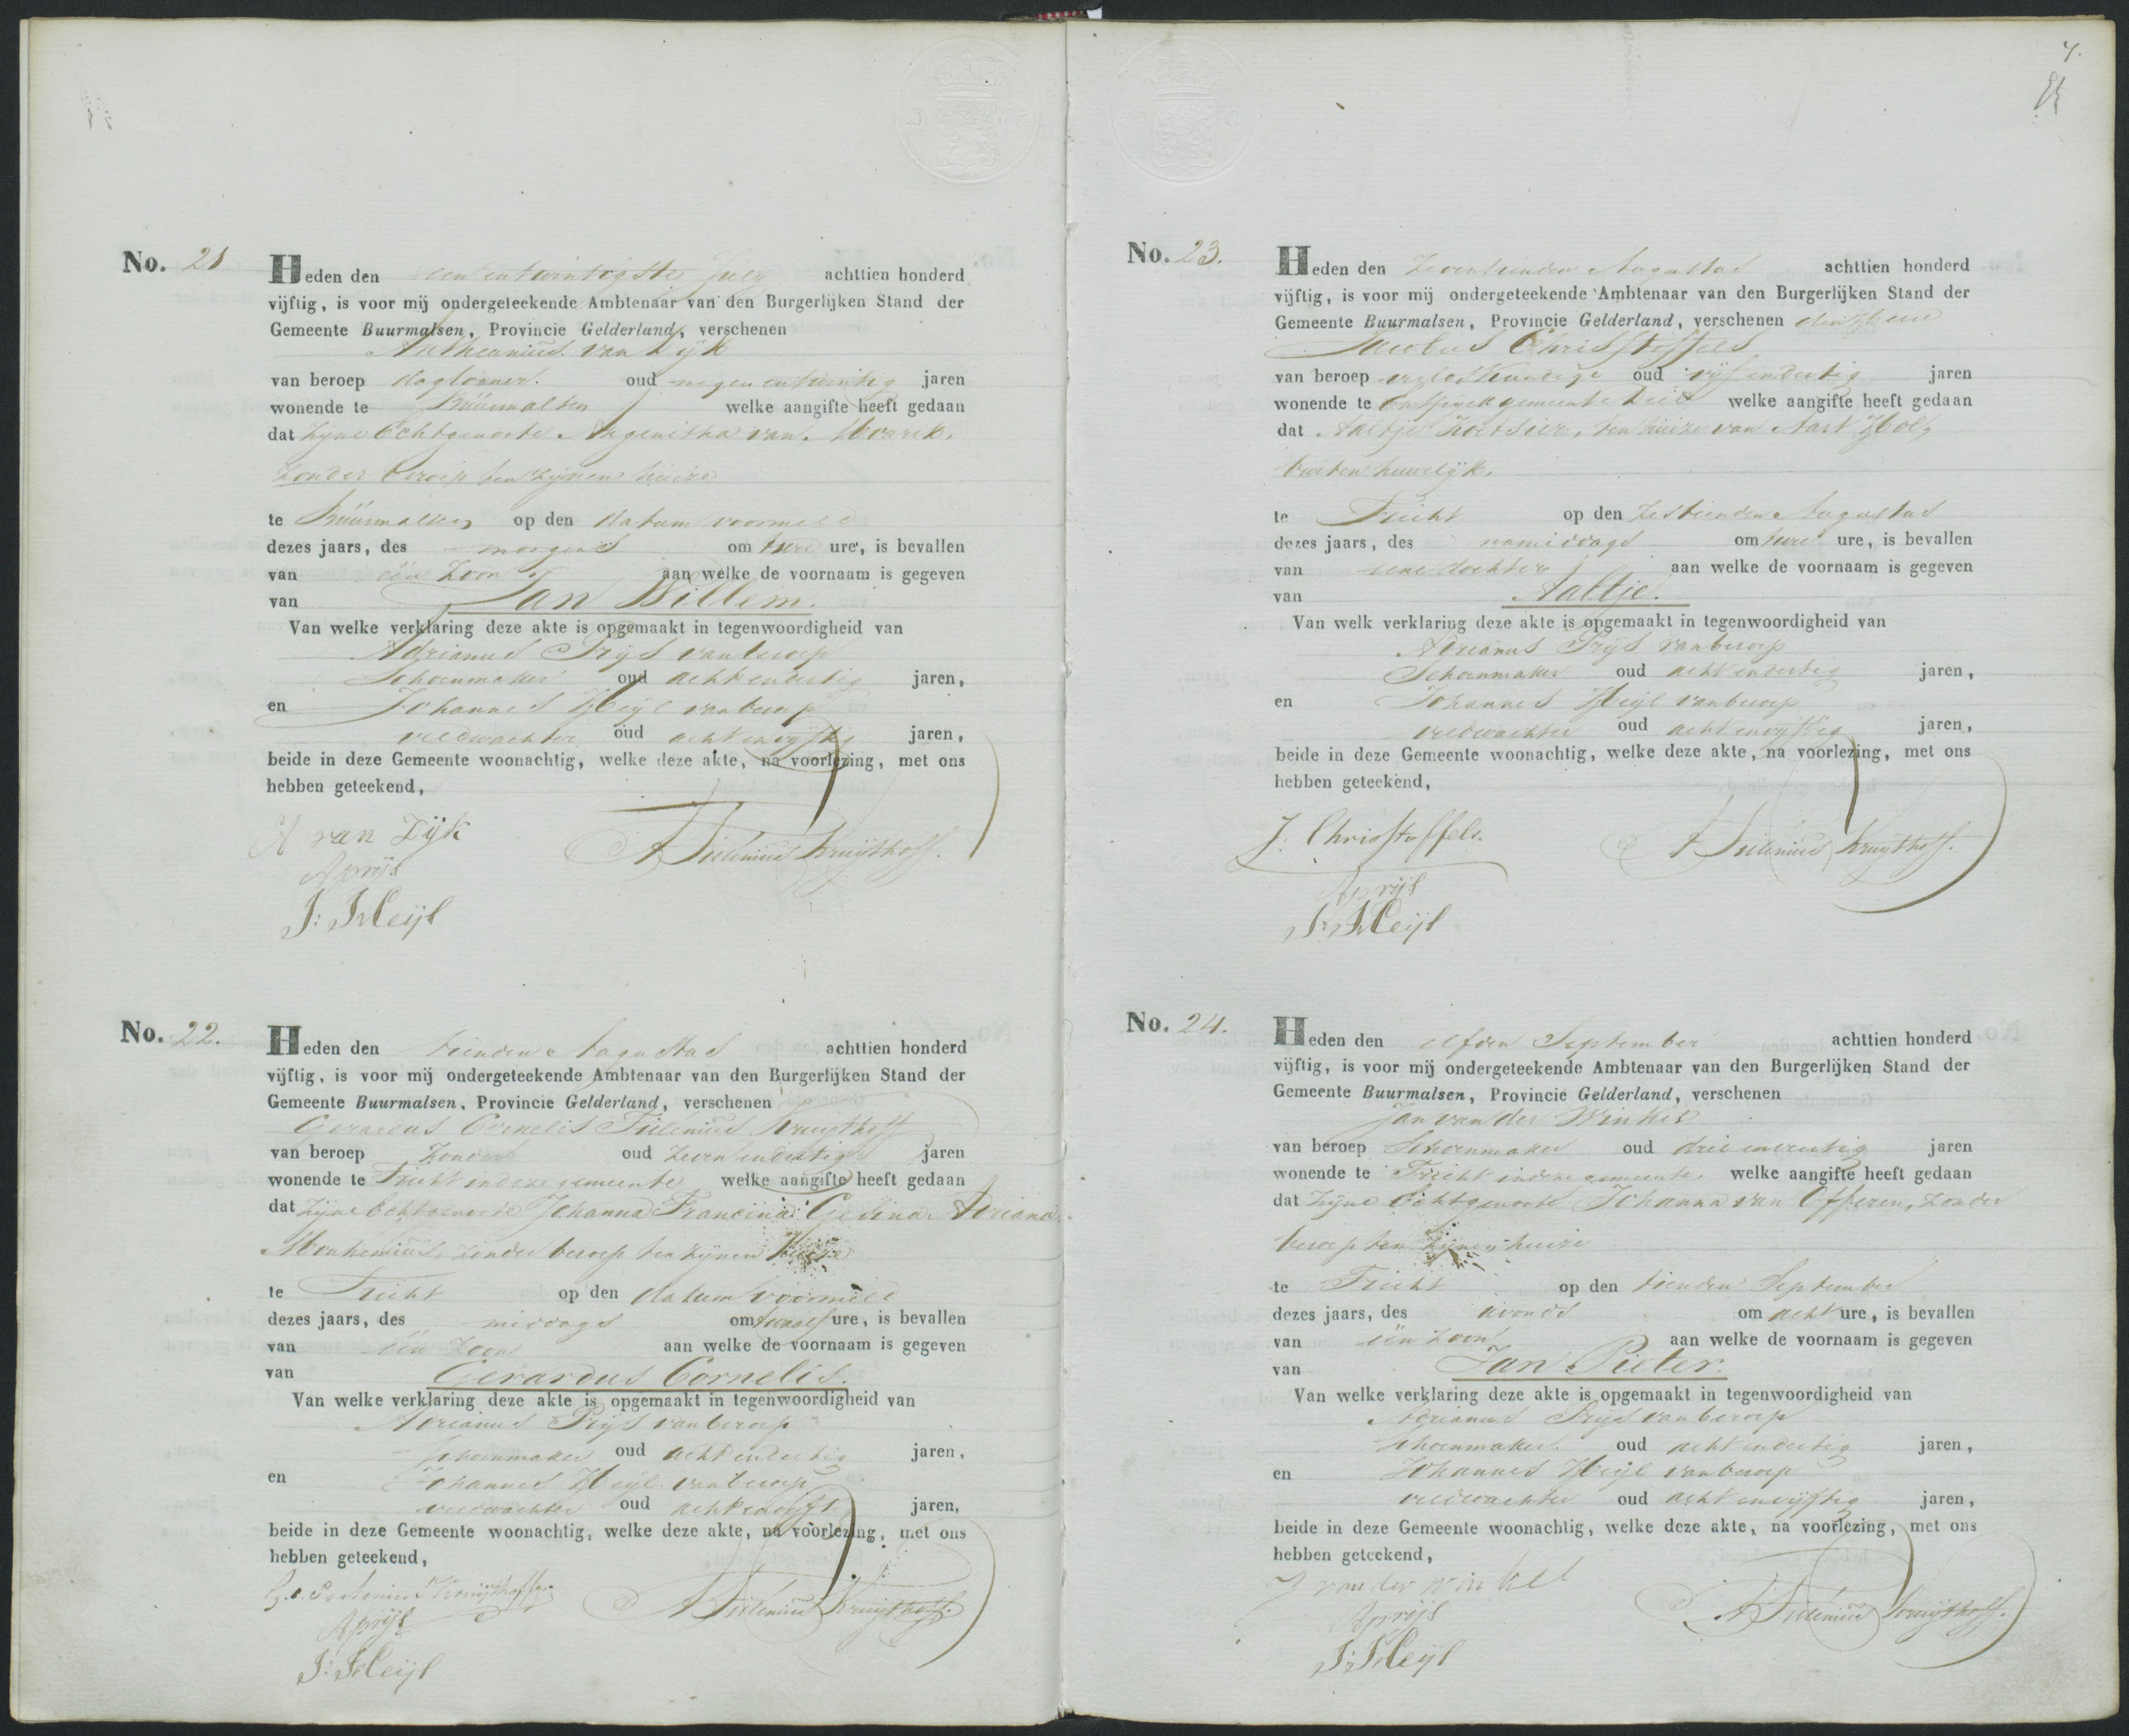 No. 21
Heden den een en twintigste July achttien honderd
vijftig, is voor mij ondergeteekende Ambtenaar van den Burgerlijken Stand der
Gemeente Buurmalsen, Provincie Gelderland, verschenen
Antheunius van Dijk
van beroep daglooner. oud negen en twintig jaren
wonende te Buurmalsen welke aangifte heeft gedaan
dat zijne Echtgenoote van
zonder beroep ten zijnen huize
te Buurmalsen op den datum voormeld
dezes jaars, des morgens om twee ure, is bevallen
van één Zoon aan welke de voornaam is gegeven
van Jan Willem.
Van welke verklaring deze akte is opgemaakt in tegenwoordigheid van
Adrianus Prijs van beroep
Schoenmaker oud acht en dertig jaren,
en Johannes Heijl van beroep
veldwachter oud acht en vijftig jaren,
beide in deze Gemeente woonachtig, welke deze akte, na voorlezing, met ons
hebben geteekend,
A van Dijk
A Tielenius Kruijthoff.
A Prijs
J: Heijl
No. 22.
Heden den tienden Augustus achttien honderd
vijftig, is voor mij ondergeteekende Ambtenaar van den Burgerlijken Stand der
Gemeente Buurmalsen, Provincie Gelderland, verschenen
Gerardus Cornelis Tielenius Kruijthoff
van beroep Zonder oud zeven en dertig jaren
wonende te Tricht in deze gemeente welke aangifte heeft gedaan
dat zijne Echtgenoote Johanna Francina Gesina Adriana
Monhemius, zonder beroep ten zijnen huize
te Tricht op den datum voormeld
dezes jaars, des middags om twaalf ure, is bevallen
van één Zoon aan welke de voornaam is gegeven
van Gerardus Cornelis.
Van welke verklaring deze akte is opgemaakt in tegenwoordigheid van
Adrianus Prijs van beroep
schoenmaker oud acht en dertig jaren,
en Johannes Heijl van beroep
veldwachter oud acht en vijftig jaren,
beide in deze Gemeente woonachtig, welke deze akte, na voorlezing, met ons
hebben geteekend,
G. C. Tielenius Kruijthoff
A Tielenius Kruijthoff.
A Prijs
J: Heijl
7.
No. 23.
Heden den Zeventienden Augustus achttien honderd
vijftig, is voor mij ondergeteekende Ambtenaar van den Burgerlijken Stand der
Gemeente Buurmalsen, Provincie Gelderland, verschenen den Heer
Jacobus Christoffels
van beroep verloskundige oud vijf en dertig jaren
wonende te Enspijk gemeente Deil welke aangifte heeft gedaan
dat Aaltje ten huize van Aart
buiten huwelijk.
te Tricht op den zestienden Augustus
dezes jaars, des namiddags om twee ure, is bevallen
van eene dochter aan welke de voornaam is gegeven
van Aaltje.
Van welk verklaring deze akte is opgemaakt in tegenwoordigheid van
Adrianus Prijs van beroep
Schoenmaker oud acht en dertig jaren,
en Johannes Heijl van beroep
veldwachter oud acht en vijftig jaren,
beide in deze Gemeente woonachtig, welke deze akte, na voorlezing, met ons
hebben geteekend,
J. Christoffels.
A Tielenius Kruijthoff.
A Prijs
J: Heijl
No. 24.
Heden den elfden September achttien honderd
vijftig, is voor mij ondergeteekende Ambtenaar van den Burgerlijken Stand der
Gemeente Buurmalsen, Provincie Gelderland, verschenen
Jan van der Winkel
van beroep Schoenmaker oud drie en jaren
wonende te Tricht in deze gemeente welke aangifte heeft gedaan
dat zijne Echtgenoote Johanna van Offeren, zonder
beroep ten zijnen huize
te Tricht op den tienden September
dezes jaars, des avonds om acht ure, is bevallen
van één zoon aan welke de voornaam is gegeven
van Jan Pieter.
Van welke verklaring deze akte is opgemaakt in tegenwoordigheid van
Adrianus Prijs van beroep
Schoenmaker. oud acht en dertig jaren,
en Johannes Heijl van beroep
veldwachter oud acht en vijftig jaren,
beide in deze Gemeente woonachtig, welke deze akte, na voorlezing, met ons
hebben geteekend,
J van der winkel
A Tielenius Kruijthoff.
A Prijs
J: Heijl